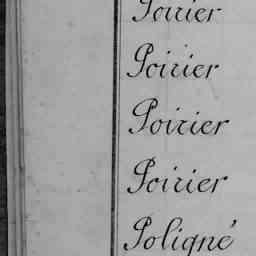 Poirier
Poirier
Poirier
Poirier
Poligné